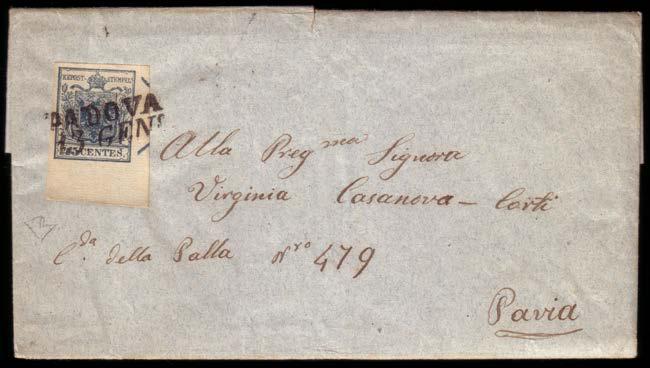 KKPOST-STEMPEL
PADOVA
13 GEN.
45 CENTES.
Alla Preg.ma Signora
Virginia Casanova - Corti
C.da della Palla N.ro 479
Pavia